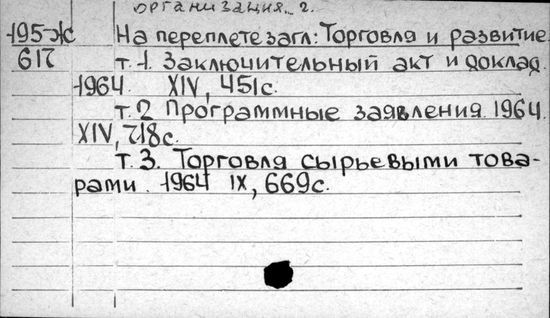 организация. 2.
195-Ж На переплете загл: Торговля и развитие.
617 т. 1. Заключительный акт и доклад.
1964. XIV, 451с.
т. 2 Программные заявления. 1964.
XIV, 718с.
т. 3. Торговля сырьевыми това-
рами. 1964 IX, 669с.